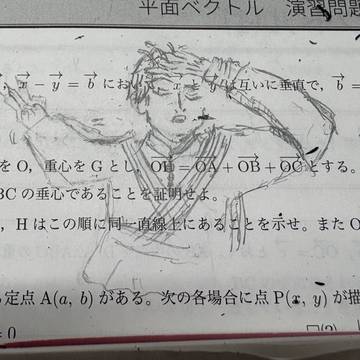 平面ベクトル 演習問題
, x⃗ − y⃗ = b⃗ において, x⃗ と y⃗ は互いに垂直で, b⃗ =
を O, 重心を G とし, OH⃗ = OA⃗ + OB⃗ + OC⃗ とする.
BC の垂心であることを証明せよ.
, H はこの順に同一直線上にあることを示せ. また O
る定点 A(a, b) がある. 次の各場合に点 P(x, y) が描
= 0